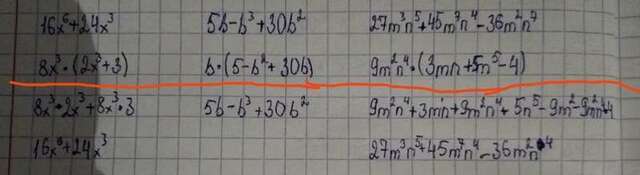 16x⁶+24x³ 5b-b³+30b² 27m³n⁵+45m⁷n⁴-36m²n⁷
8x³·(2x³+3) b·(5-b²+30b) 9m²n⁴·(3mn+5n⁵-4)
8x³·2x³+8x³·3 5b-b³+30b² 9m²n⁴+3mn+9m²n⁴+5n⁵-9m²-9m²n⁴+4
16x⁶+24x³ 27m³n⁵+45m⁷n⁴-36m²n⁴